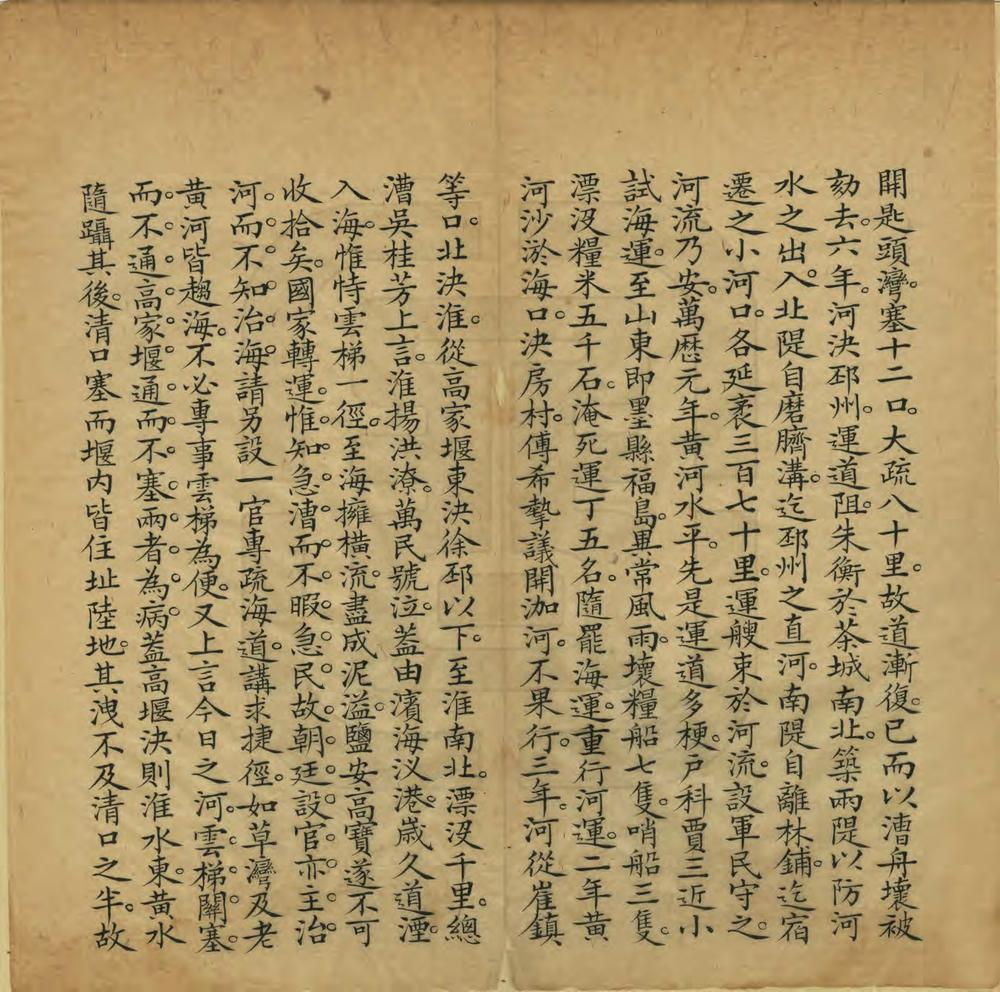 開匙頭灣。塞十二口。大疏八十里。故道漸復。已而以漕舟壞被
劾去。六年。河決邳州。運道阻。朱衡於茶城南北。築兩隄。以防河
水之出入。北隄自磨臍溝。迄邳州之直河。南隄自離林鋪。迄宿
遷之小河口。各延袤三百七十里。運艘束於河流。設軍民守之。
河流乃安。萬歷元年。黃河水平。先是運道多梗。戶科賈三近小
試海運。至山東即墨縣福島。異常風雨。壞糧船七隻。哨船三隻。
漂沒糧米五千石。淹死運丁五名。隨罷海運。重行河運。二年黃
河沙淤海口。決房村。傅希摯議開泇河。不果行。三年。河從崔鎮
等口。北決淮。從高家堰東決徐邳以下。至淮南北。漂沒千里。總
漕吳桂芳上言。淮揚洪潦。萬民號泣。蓋由濱海汊港。歲久道湮。
入海。惟恃雲梯一徑。至海擁橫流。盡成泥溢。鹽安高寶。遂不可
收拾矣。國家轉運。惟知急漕。而不暇急民。故朝廷設官。亦主治
河。而不知治海。請另設一官。專疏海道。講求捷徑。如草灣及老
黃河皆趨海。不必專事雲梯為便。又上言今日之河。雲梯關塞。
而不通。高家堰通而不塞。兩者為病。蓋高堰決則淮水東。黃水
隨躡其後。清口塞而堰內皆住址陸地。其洩不及清口之半。故